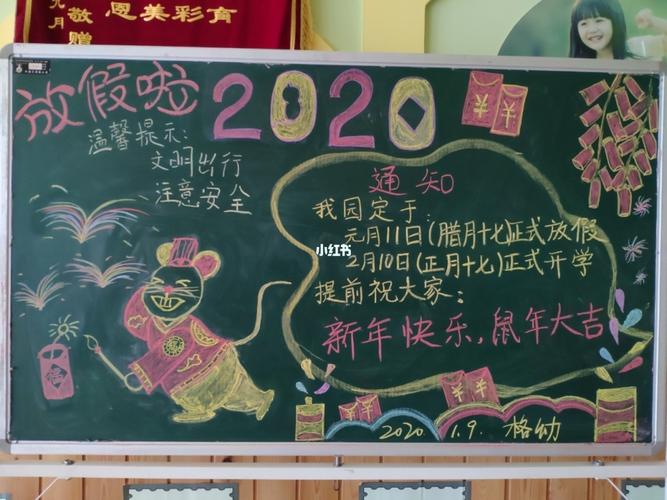 恩美彩育
敬赠
九月
放假啦
2020
温馨提示:
文明出行
注意安全
通知
我园定于:
元月11日(腊月十七)正式放假
2月10日(正月十七)正式开学
提前祝大家:
新年快乐,鼠年大吉
¥ ¥
小红书
¥ ¥
¥ ¥
2020. 1.9. 格幼